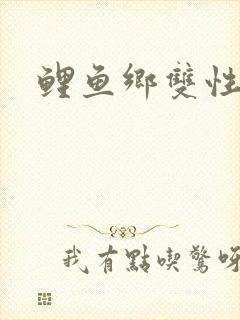 鲤鱼鄉雙性
我有點喫驚呀